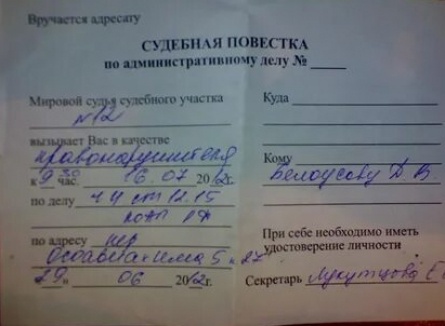 Вручается адресату
СУДЕБНАЯ ПОВЕСТКА
по административному делу №
Мировой судья судебного участка
№12
вызывает Вас в качестве
правонарушителя
к 9 30 час. 16.07 2012г.
по делу ч 4 ст 12.15
КоАП РФ
по адресу
Осоавиахима 5 к 27
29 06 2012г.
Куда
Кому
Белоусову Д. В.
При себе необходимо иметь
удостоверение личности
Секретарь